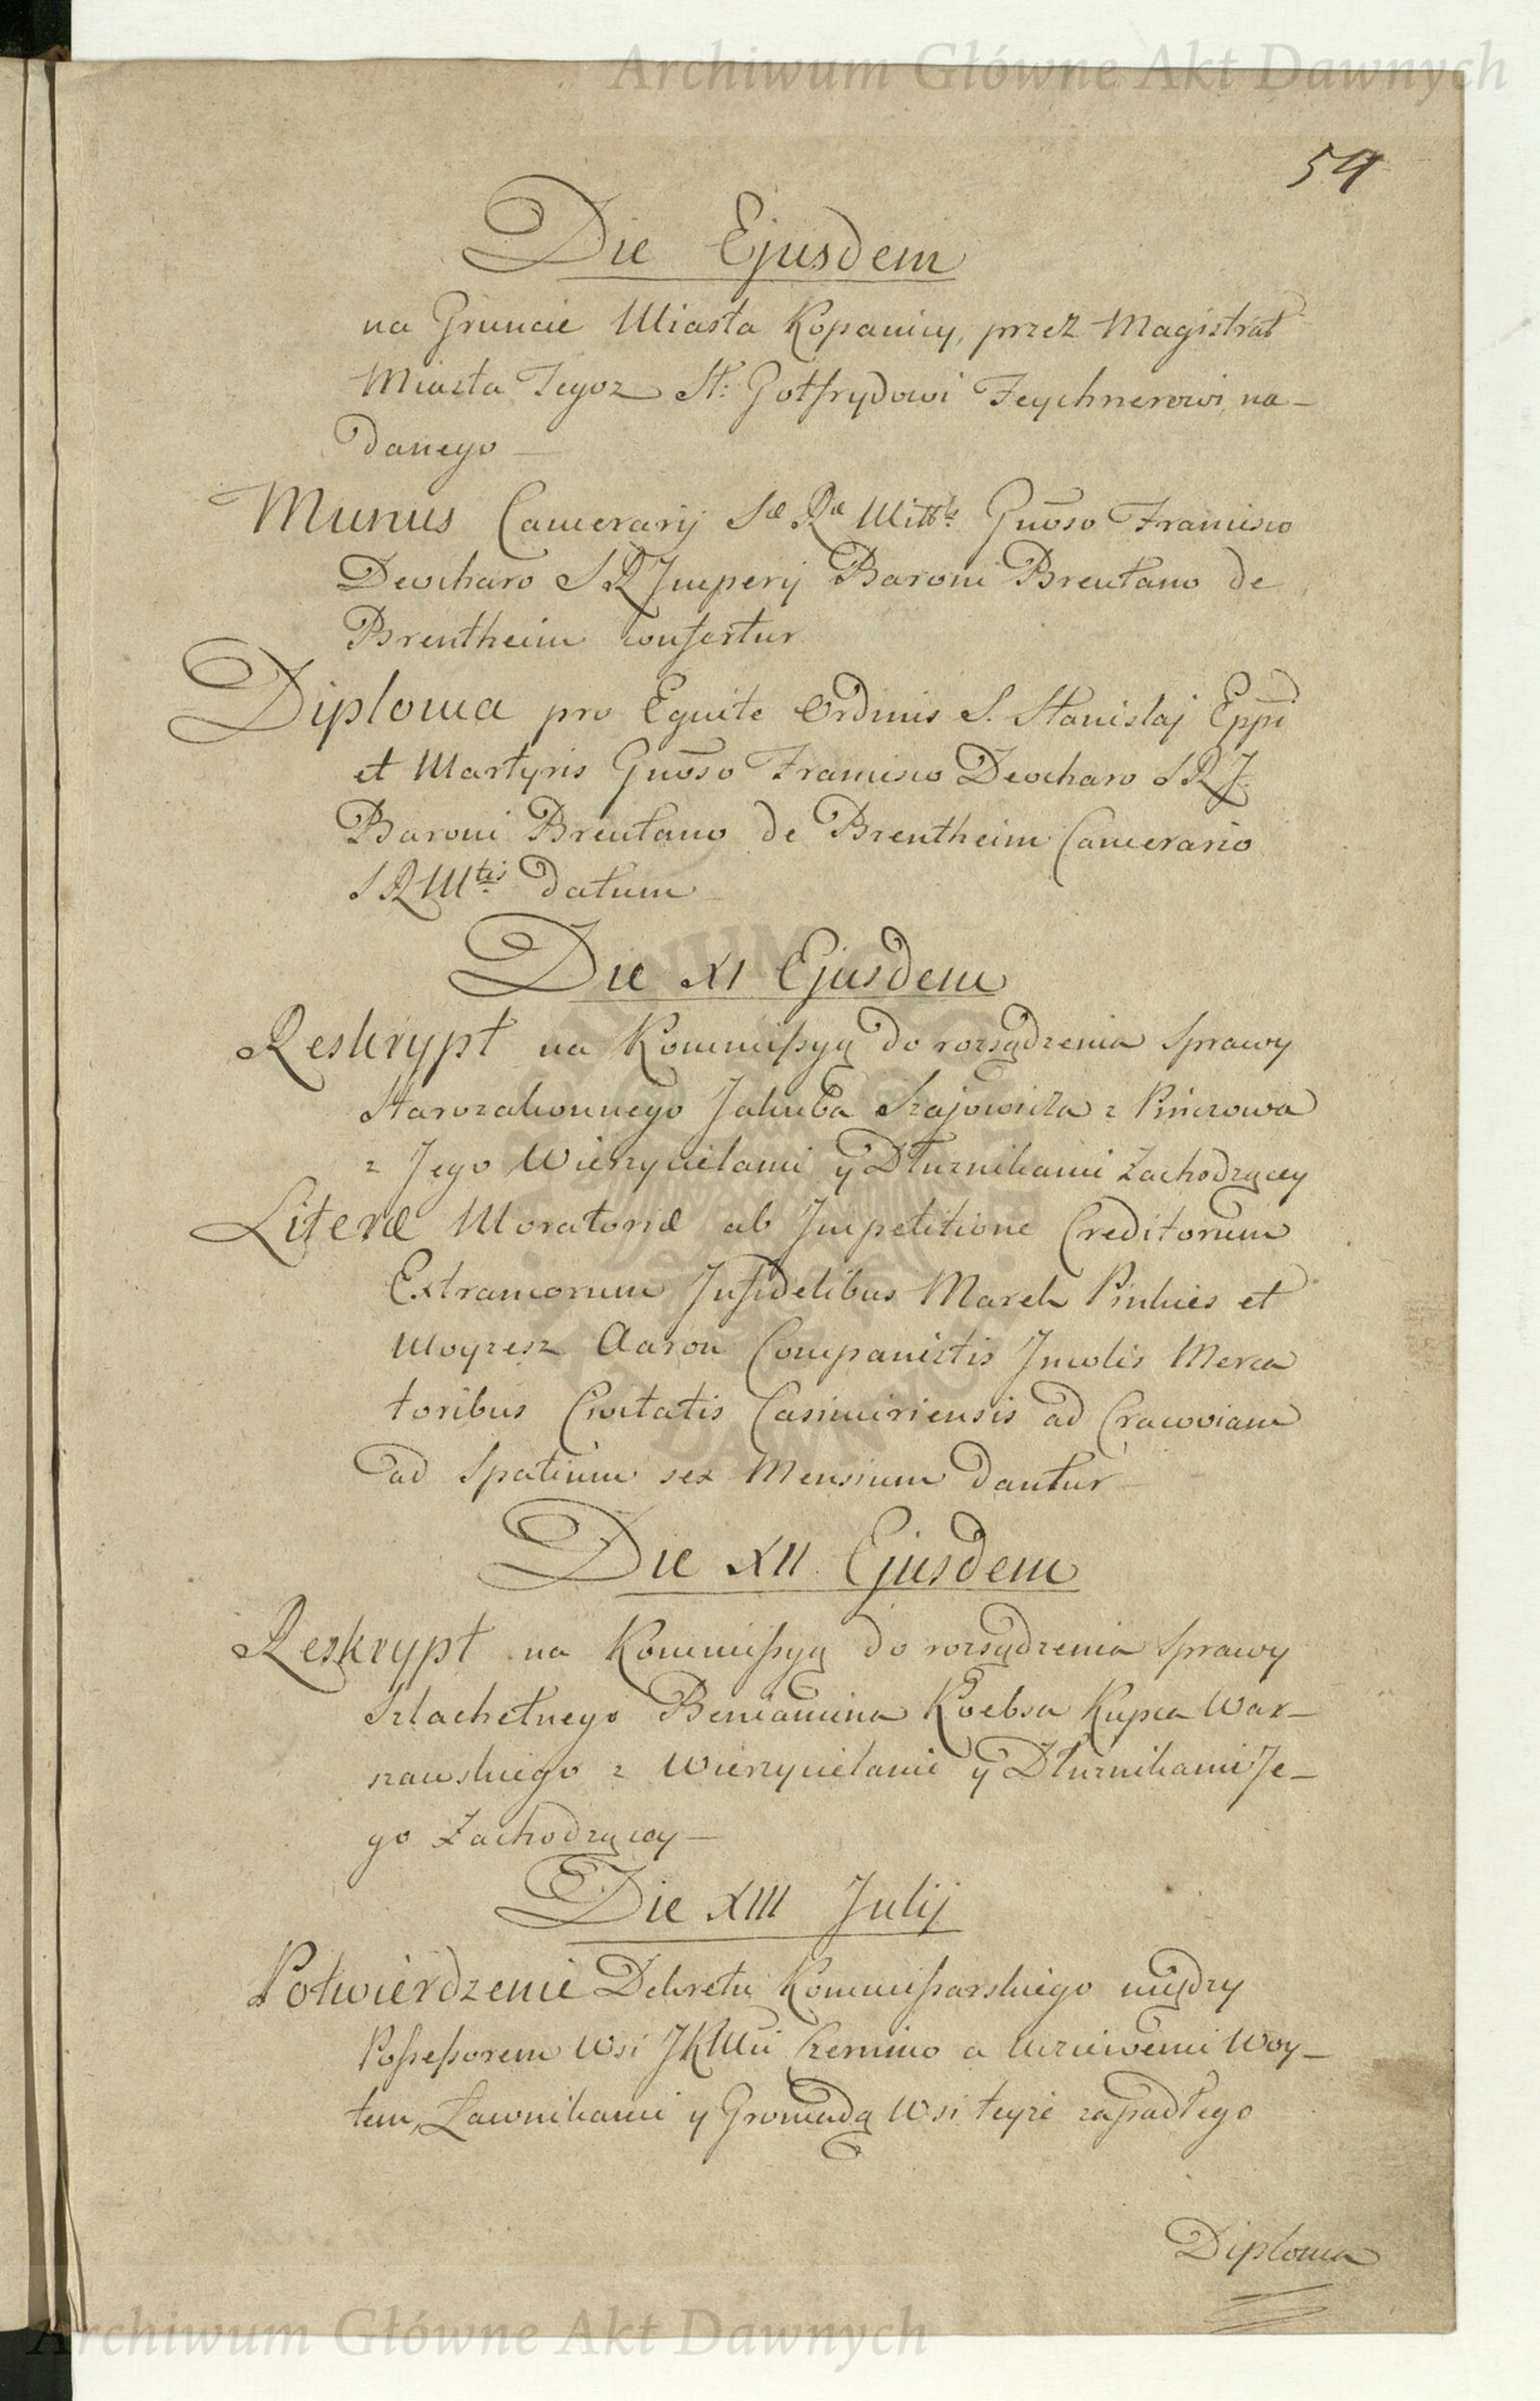 Archiwum Główne Akt Dawnych
59
Die Ejusdem
na Gruncie Miasta Kopanicy, przez Magistrat
Miasta Tegoz St: Gotfrydowi Feychnerowi na-
danego
Munus Camerarij Sæ Ræ Mttis Gnoso Francisco
Deocharo S R Imperij Baroni Brentano de
Brentheim confertur
Diploma pro Equite Ordinis S. Stanislaj Eppi
et Martyris Gnoso Francisco Deocharo S R J.
Baroni Brentano de Brentheim Camerario
S R Mtis datum
Die XI Ejusdem
Reskrypt na Kommissyą do rozsądzenia Sprawy
Starozakonnego Jakuba Szajowicza z Pinczowa
z Jego Wierzycielami y Dłuznikami Zachodzącey
Literæ Moratoriæ ab Impetitione Creditorum
Extraneorum Infidelibus Marek Pinkies et
Moyzesz Aaron Companistis Incolis Merca
toribus Civitatis Casimiriensis ad Cracoviam
ad Spatium sex Mensium dantur
Die XII Ejusdem
Reskrypt na Kommissyą do rozsądzenia Sprawy
Szlachetnego Beniamina Koebsa Kupca War-
szawskiego z Wierzycielami y Dłuznikami Je-
go Zachodzącey
Die XIII Julij
Potwierdzenie Dekretu Kommissarskiego między
Possessorem Wsi JKMci a Uczciwemi Woy-
tem, Ławnikami y Gromadą Wsi teyze zapadłego
Diploma
Archiwum Główne Akt Dawnych